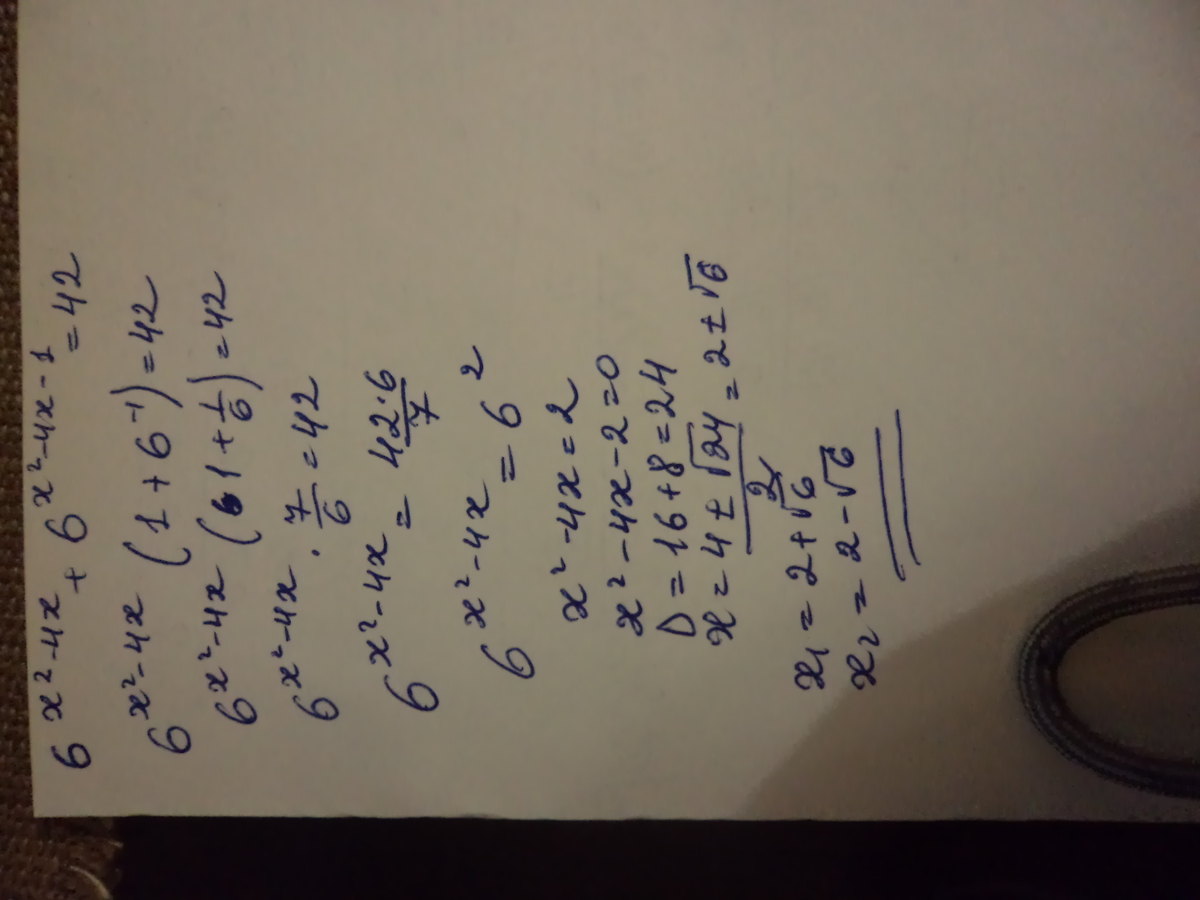 6^(x²-4x) + 6^(x²-4x-1) = 42
6^(x²-4x) (1 + 6^(-1)) = 42
6^(x²-4x) (1 + 1/6) = 42
6^(x²-4x) · 7/6 = 42
6^(x²-4x) = 42·6/7
6^(x²-4x) = 6²
x²-4x=2
x²-4x-2=0
D=16+8=24
x = (4±√24)/2 = 2±√6
x₁ = 2+√6
x₂ = 2-√6